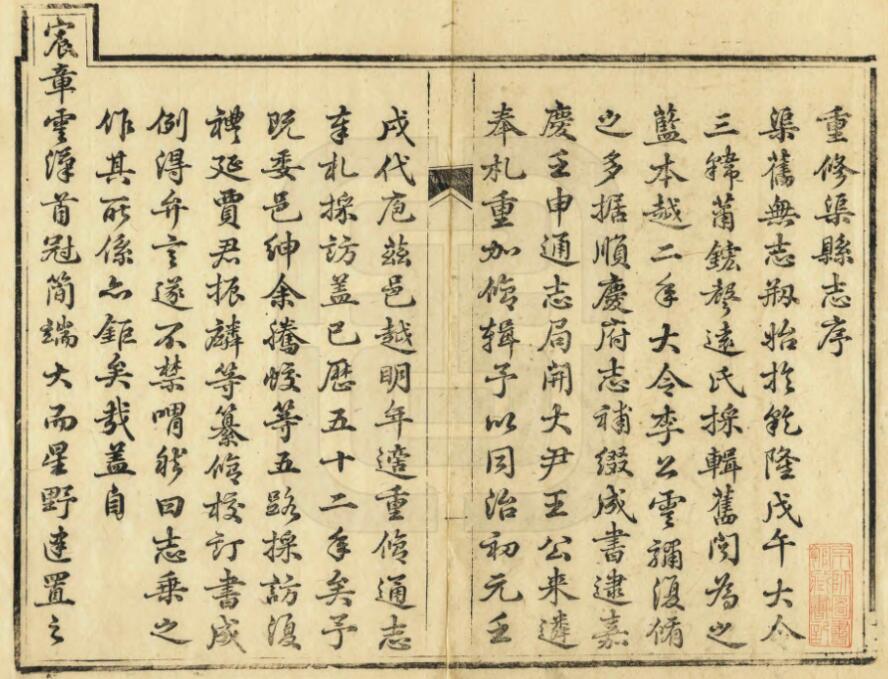 重修渠縣志序
渠舊無志刱始於乾隆戊午大令
三韓蕭鋐聲遠氏採輯舊聞為之
藍本越二年大令李公雲彌復備
之多据順慶府志補綴成書逮嘉
慶壬申通志局開大尹王公来遴
奉札重加脩輯予以同治初元壬
戌代庖茲邑越明年適重脩通志
奉札採訪盖已歷五十二年矣予
既委邑紳余騰蛟等五路採訪復
禮延賈君振麟等纂脩校訂書成
例得弁言遂不禁喟然曰志乗之
作其所係亦鉅矣哉盖自
宸章雲漢首冠簡端大而星野建置之